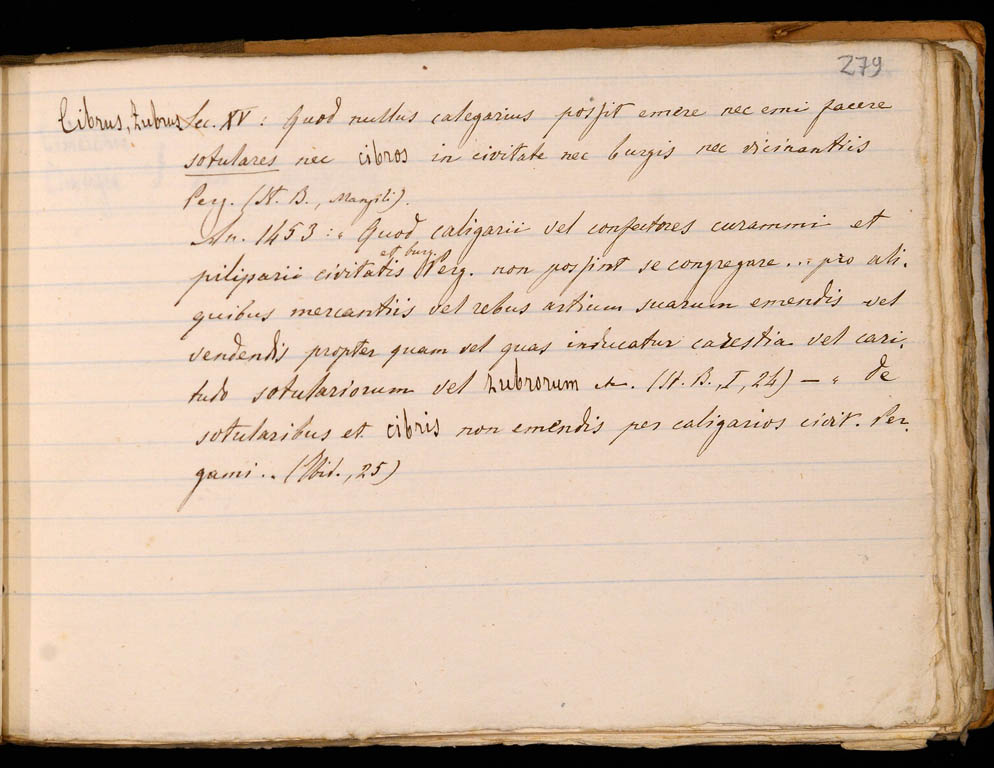 279
Cibrus, Zubrus Sec. XV: Quod nullus calegarius possit emere nec emi facere
sotulares nec cibros in civitate nec burgis nec vicinantiis
Perg. (St. B., Manzili).
An. 1453: " Quod caligarii vel confectores curammi et
piliparii civitatis et burg. Perg. non possint se congregare... pro ali-
quibus mercantiis vel rebus artium suarum emendis vel
vendendis propter quam vel quas inducatur carestia vel cari-
tudo sotulariorum vel zubrorum etc. (St. B., I, 24) — " De
sotularibus et cibris non emendis per caligarios civit. Per-
gami.. (Ibid., 25)